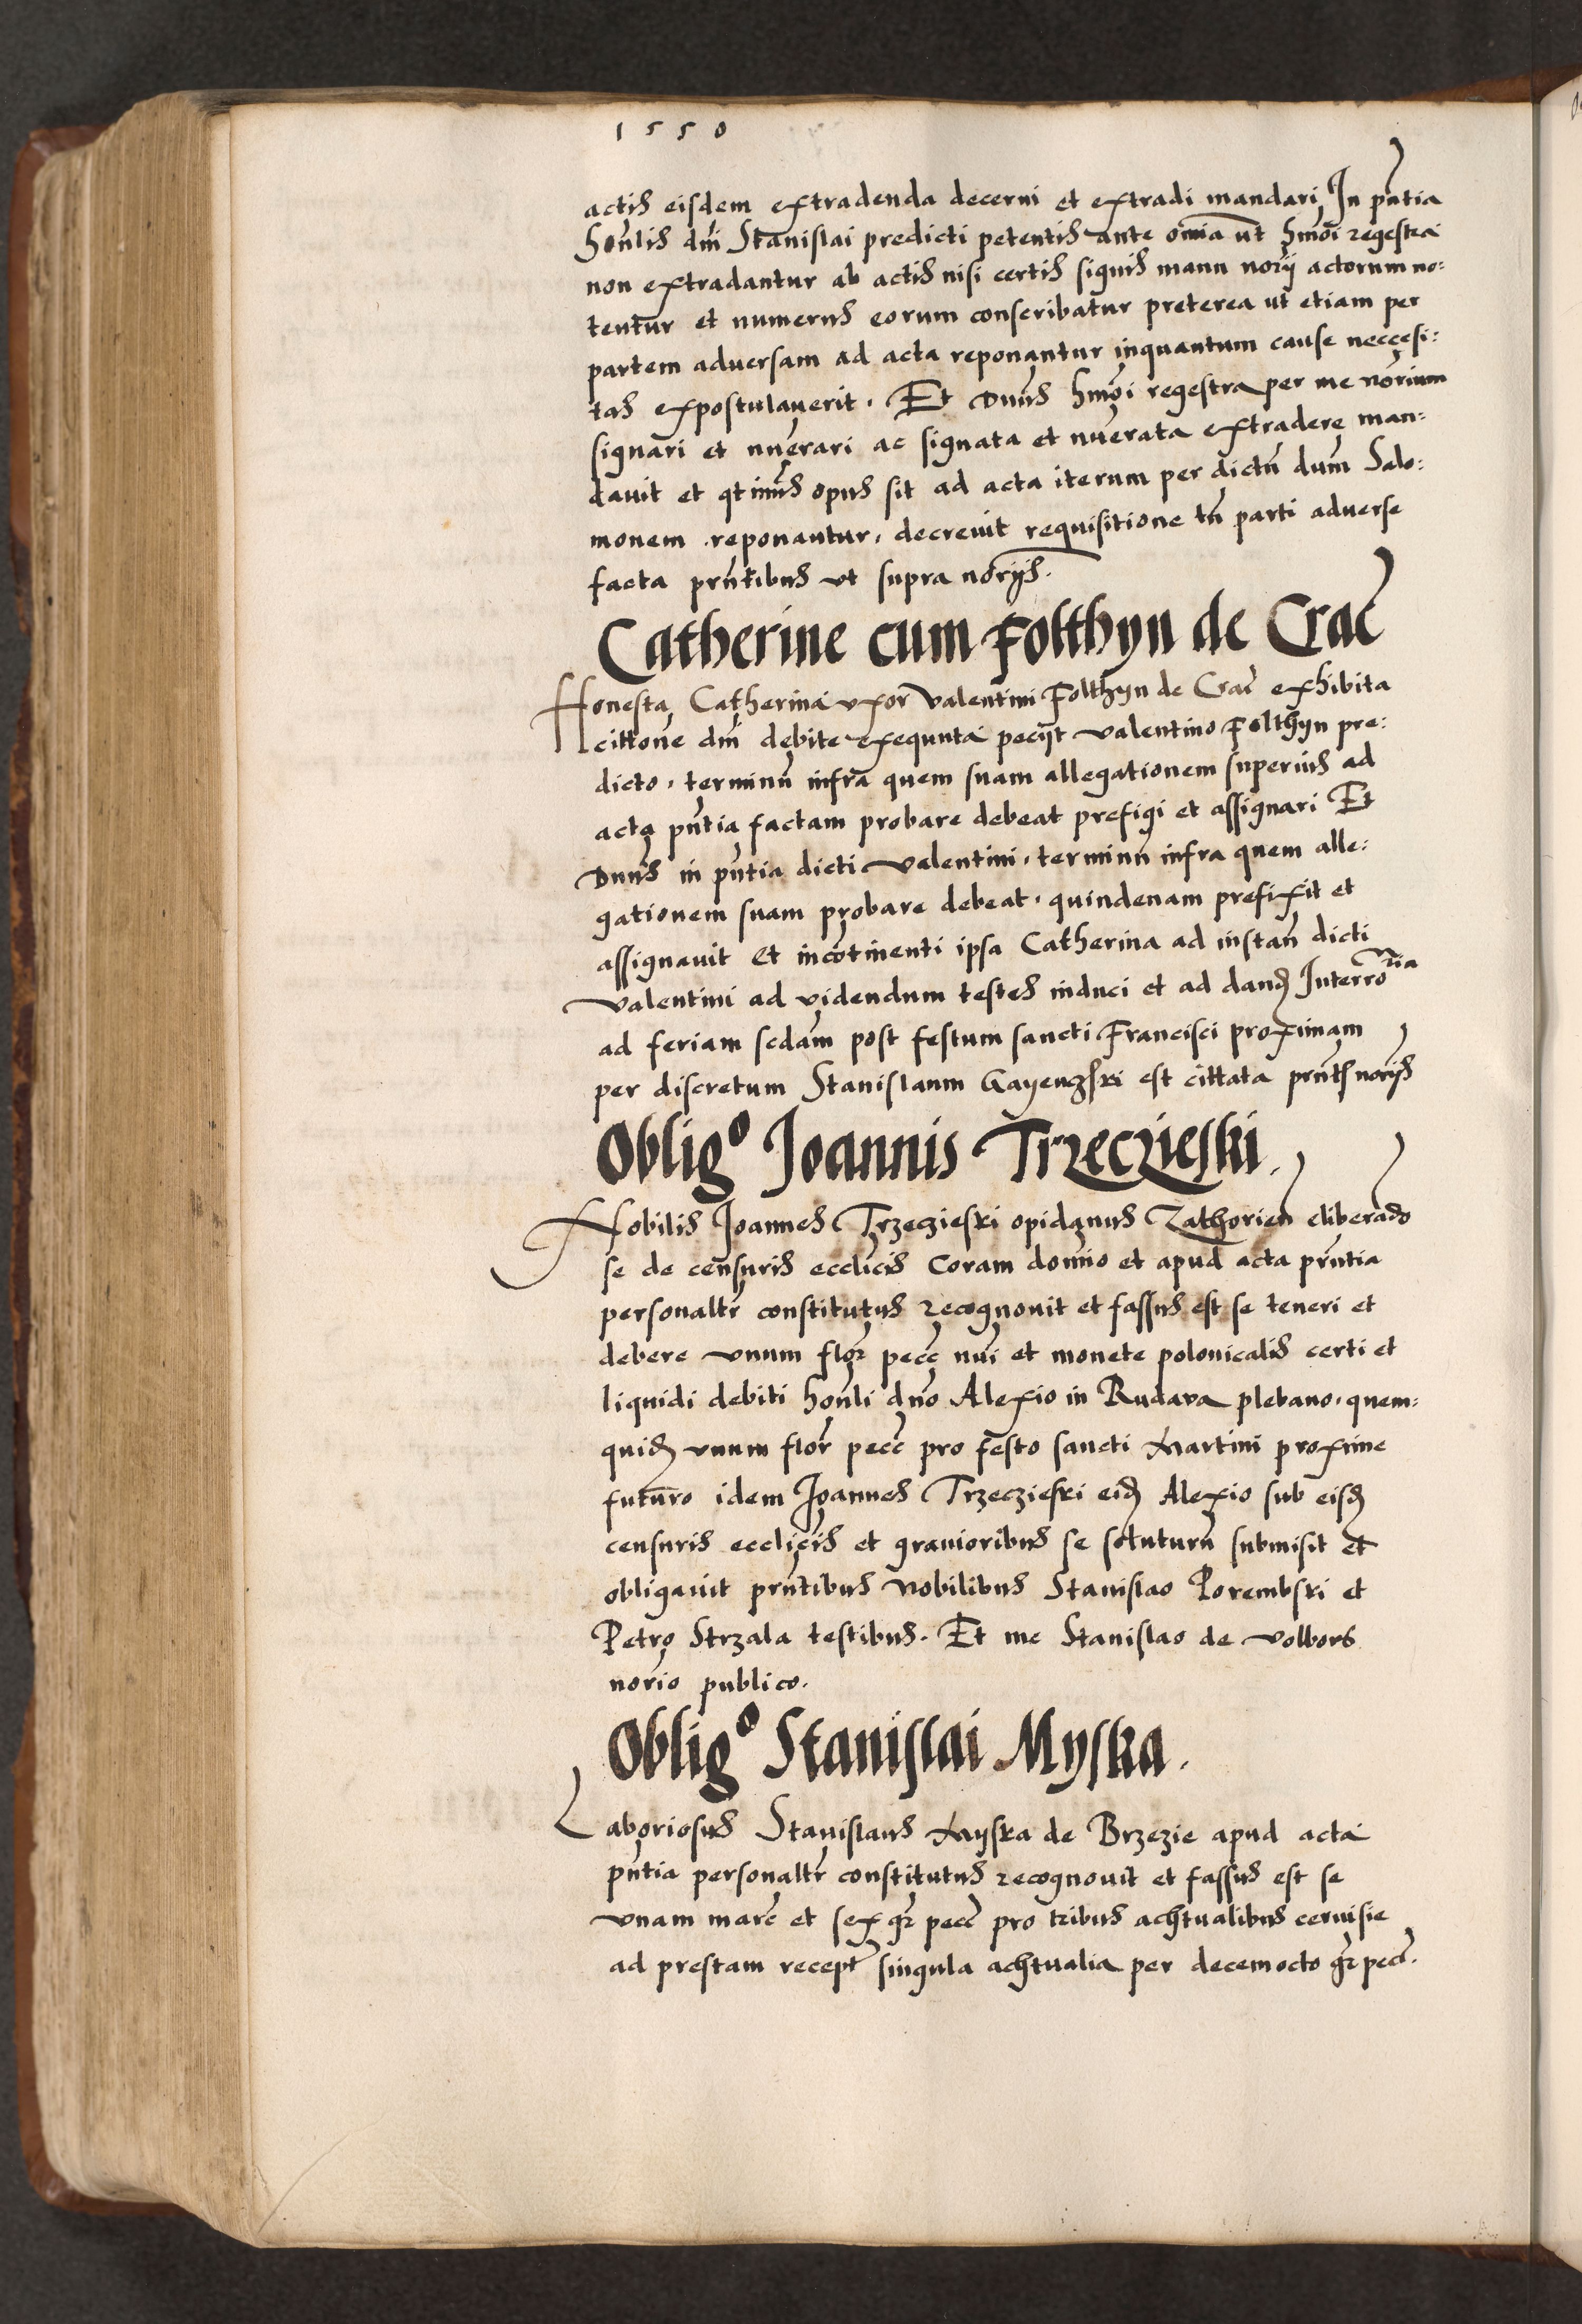 1550
actis eisdem extradenda decerni et extradi mandari In pn̄tia
hon̄lis dm̄i Stanislai predicti petentis ante om̄ia ut hm̄oi regestra
non extradantur ab actis nisi certis signis manu nor̄ij actorum no:
tentur et numerus eorum conscribatur preterea ut etiam per
partem adversam ad acta reponantur inquantum cause neccesi:
tas expostulaverit. Et Dn̄us hm̄oi regestra per me nor̄ium
signari et nūerari ac signata et nūerata extradere man:
davit et qt̄inus opus sit ad acta iterum per dictū dnm̄ Salo:
monem reponantur, decrevit requisitione tn̄ parti adverse
facta prn̄tibus ut supra nor̄ijs.
Catherine cum Folthyn de Crac̄
Honesta Catherina uxor Valentini Folthyn de Crac̄ exhibita
cittōne dn̄i debite exequuta peciit Valentino Folthyn pre:
dicto, terminū infra quem suam allegationem superius ad
acta pn̄tia factam probare debeat prefigi et assignari Et
Dn̄us in pn̄tia dicti Valentini, terminū infra quem alle:
gationem suam probare debeat, quindenam prefixit et
assignavit Et incōtinenti ipsa Catherina ad instan̄ dicti
Valentini ad videndum testes induci et ad dand̄ Interroria
ad feriam sc̄dam post festum sancti Francisci proximam
per discretum Stanislaum Gayenczski est cittata prn̄ts nor̄ijs
Oblig° Joannis Trzeczieski.
Nobilis Joannes Trzeczieski opidanus Zathorien̄ eliberādo
se de censuris eccl̄icis Coram domīo et apud acta prn̄tia
personaltr̄ constitutus recognovit et fassus est se teneri et
debere unum flor̄ pecc̄ nūi et monete polonicalis certi et
liquidi debiti hon̄li dn̄o Alexio in Rudava plebano, quem:
quid̄ unum flor̄ pecc̄ pro festo sancti Martini proxime
futuro idem Joannes Trzeczieski eid̄ Alexio sub eisd̄
censuris eccl̄icis et gravioribus se soluturū submisit et
obligavit prn̄tibus Nobilibus Stanislao Porembski et
Petro Strzala testibus. Et me Stanislao de Volbors
nor̄io publico.
Oblig° Stanislai Myska.
Laboriosus Stanislaus Myska de Brzezie apud acta
pn̄tia personaltr̄ constitutus recognovit et fassus est se
unam marc̄ et sex gr̄ pecc̄ pro tribus achtualibus cervisie
ad prestam recept̄ singula achtualia per decemocto gr̄ pecc̄.